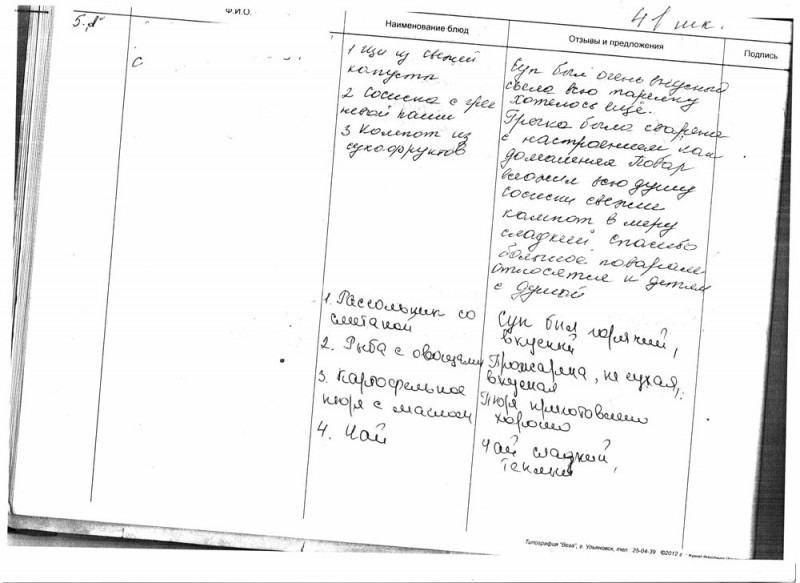 41 шк.
Ф.И.О.
Наименование блюд
Отзывы и предложения
Подпись
5 "д"
С
1 Щи из свежей
капусты
2 Сосиска с греч
невой каши
3 Компот из
сухофруктов
Суп был очень вкусный
съела всю тарелку
хотелось ещё.
Гречка была сварена
с настроением как
домашняя Повар
вложил всю душу
Сосиски свежие
компот в меру
сладкий, спасибо
большое поварам
относятся к детям
с душой
1. Рассольник со
сметаной
2. Рыба с овощами
3. Картофельное
пюре с маслом
4. Чай
Суп был горячий,
вкусный
Прожарена, не сухая,
вкусная
Пюре приготовлено
хорошо
Чай сладкий,
теплый
Типография "Вега", г. Ульяновск, тел.: 25-04-39 ©2012 г.